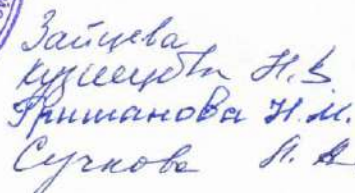 Зайцева
Кузнецова Н.В
Гришанова Н.М.
Сучкова Л.А